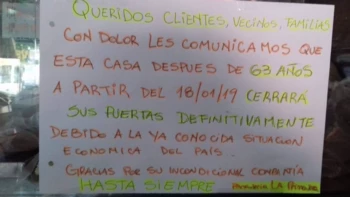 QUERIDOS CLIENTES, VECINOS, FAMILIAS
• CON DOLOR LES COMUNICAMOS QUE
ESTA CASA DESPUES DE 63 AÑOS
A PARTIR DEL 18/01/19 CERRARÁ
SUS PUERTAS DEFINITIVAMENTE
DEBIDO A LA YA CONOCIDA SITUACION
ECONOMICA DEL PAIS.
• GRACIAS POR SU INCONDICIONAL COMPAÑIA
HASTA SIEMPRE LA